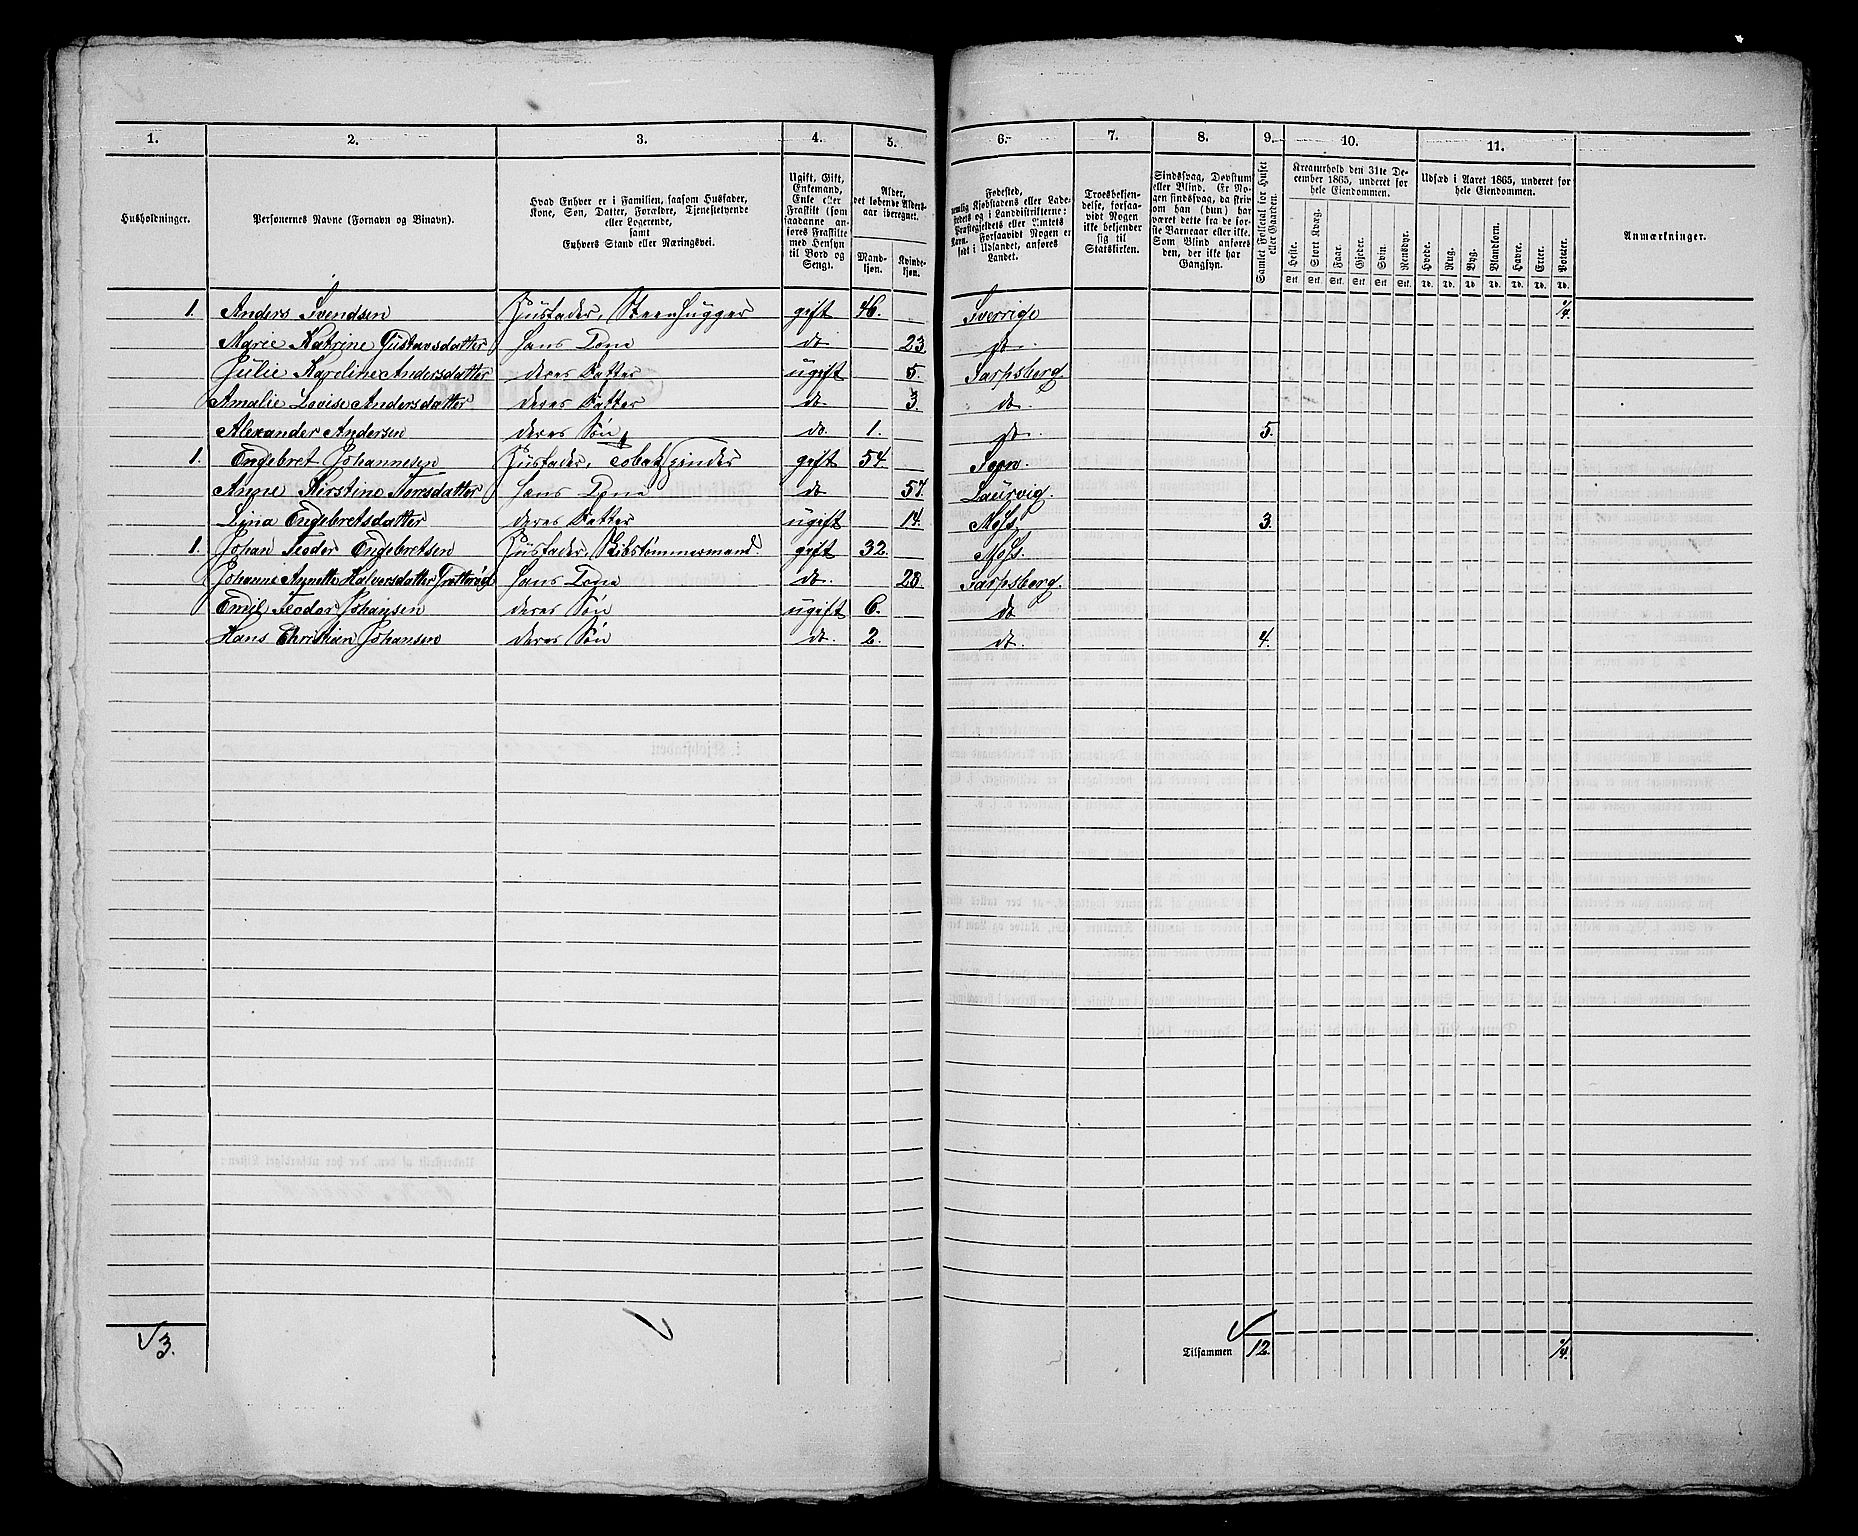 1. 2. 3. 4. 5. 6. 7. 8. 9. 10. 11.
Husholdninger.
Personernes Navne (Fornavn og Binavn).
Hvad Enhver er i Familien, saasom Husfader,
Kone, Søn, Datter, Forældre, Tjenestetyende
eller Logerende,
samt
Enhvers Stand eller Næringsvei.
Ugift, Gift,
Enkemand,
Enke eller
Fraskilt (som
saadanne an-
føres Fraskilte
med Hensyn
til Bord og
Seng).
Alder,
det løbende Alders-
aar iberegnet.
Mand-
kjøn.
Kvinde-
kjøn.
Fødested,
nemlig Kjøbstadens eller Lade-
stedets og i Landdistrikterne:
Præstegjeldets eller Amtets
Navn. Forsaavidt Nogen er
født i Udlandet, anføres
Landet.
Troesbekjen-
delse, forsaa-
vidt Nogen
ikke bekjender
sig til
Statskirken.
Sindssvag, Døvstum
eller Blind. Er No-
gen sindssvag, da skriv
om han (hun) har
været dette fra de før-
ste Barneaar eller ikke.
Som Blind anføres
den, der ikke har
Gangsyn.
Samlet Folketal for Huset
eller Gaarden.
Kreaturhold den 31te De-
cember 1865, underet for
hele Eiendommen.
Heste. Stort Kvæg. Faar. Gjeder. Svin. Rensdyr.
Stk. Stk. Stk. Stk. Stk. Stk.
Udsæd i Aaret 1865, underet for
hele Eiendommen.
Hvede. Rug. Byg. Blandkorn. Havre. Erter. Poteter.
Td. Td. Td. Td. Td. Td. Td.
Anmærkninger.
1. Anders Svendsen Husfader, Steenhugger gift 46. Sverrige 1/4.
Marie Katrine Gustavsdatter hans Kone do 23. do.
Julie Karoline Andersdatter deres Datter ugift 5. Sarpsborg.
Amalie Lovise Andersdatter deres Datter do. 3. do.
Alexander Andersen deres Søn do. 1. do. 5.
1. Engebret Johannesen Husfader, Tobakspinder gift 54. Sogn.
Anne Kirstine Torsdatter hans Kone do 57. Laurvig.
Lina Engebretsdatter deres Datter ugift 14. Moss. 3.
1. Johan Teodor Engebretsen Husfader, Skibstømmermand. gift 32. Moss.
Johanne Annette Halvorsdatter hans Kone do. 28. Sarpsborg.
Emil Teodor Johansen deres Søn ugift 6. do
Hans Christian Johansen deres Søn do. 2. do. 4.
3. Tilsammen 12. 1/4.